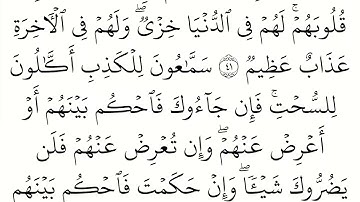 قُلُوبَهُمۡۚ لَهُمۡ فِي ٱلدُّنۡيَا خِزۡيٞۖ وَلَهُمۡ فِي ٱلۡأٓخِرَةِ
عَذَابٌ عَظِيمٞ ٤١ سَمَّٰعُونَ لِلۡكَذِبِ أَكَّٰلُونَ
لِلسُّحۡتِۚ فَإِن جَآءُوكَ فَٱحۡكُم بَيۡنَهُمۡ أَوۡ
أَعۡرِضۡ عَنۡهُمۡۖ وَإِن تُعۡرِضۡ عَنۡهُمۡ فَلَن
يَضُرُّوكَ شَيۡـٔٗاۖ وَإِنۡ حَكَمۡتَ فَٱحۡكُم بَيۡنَهُم